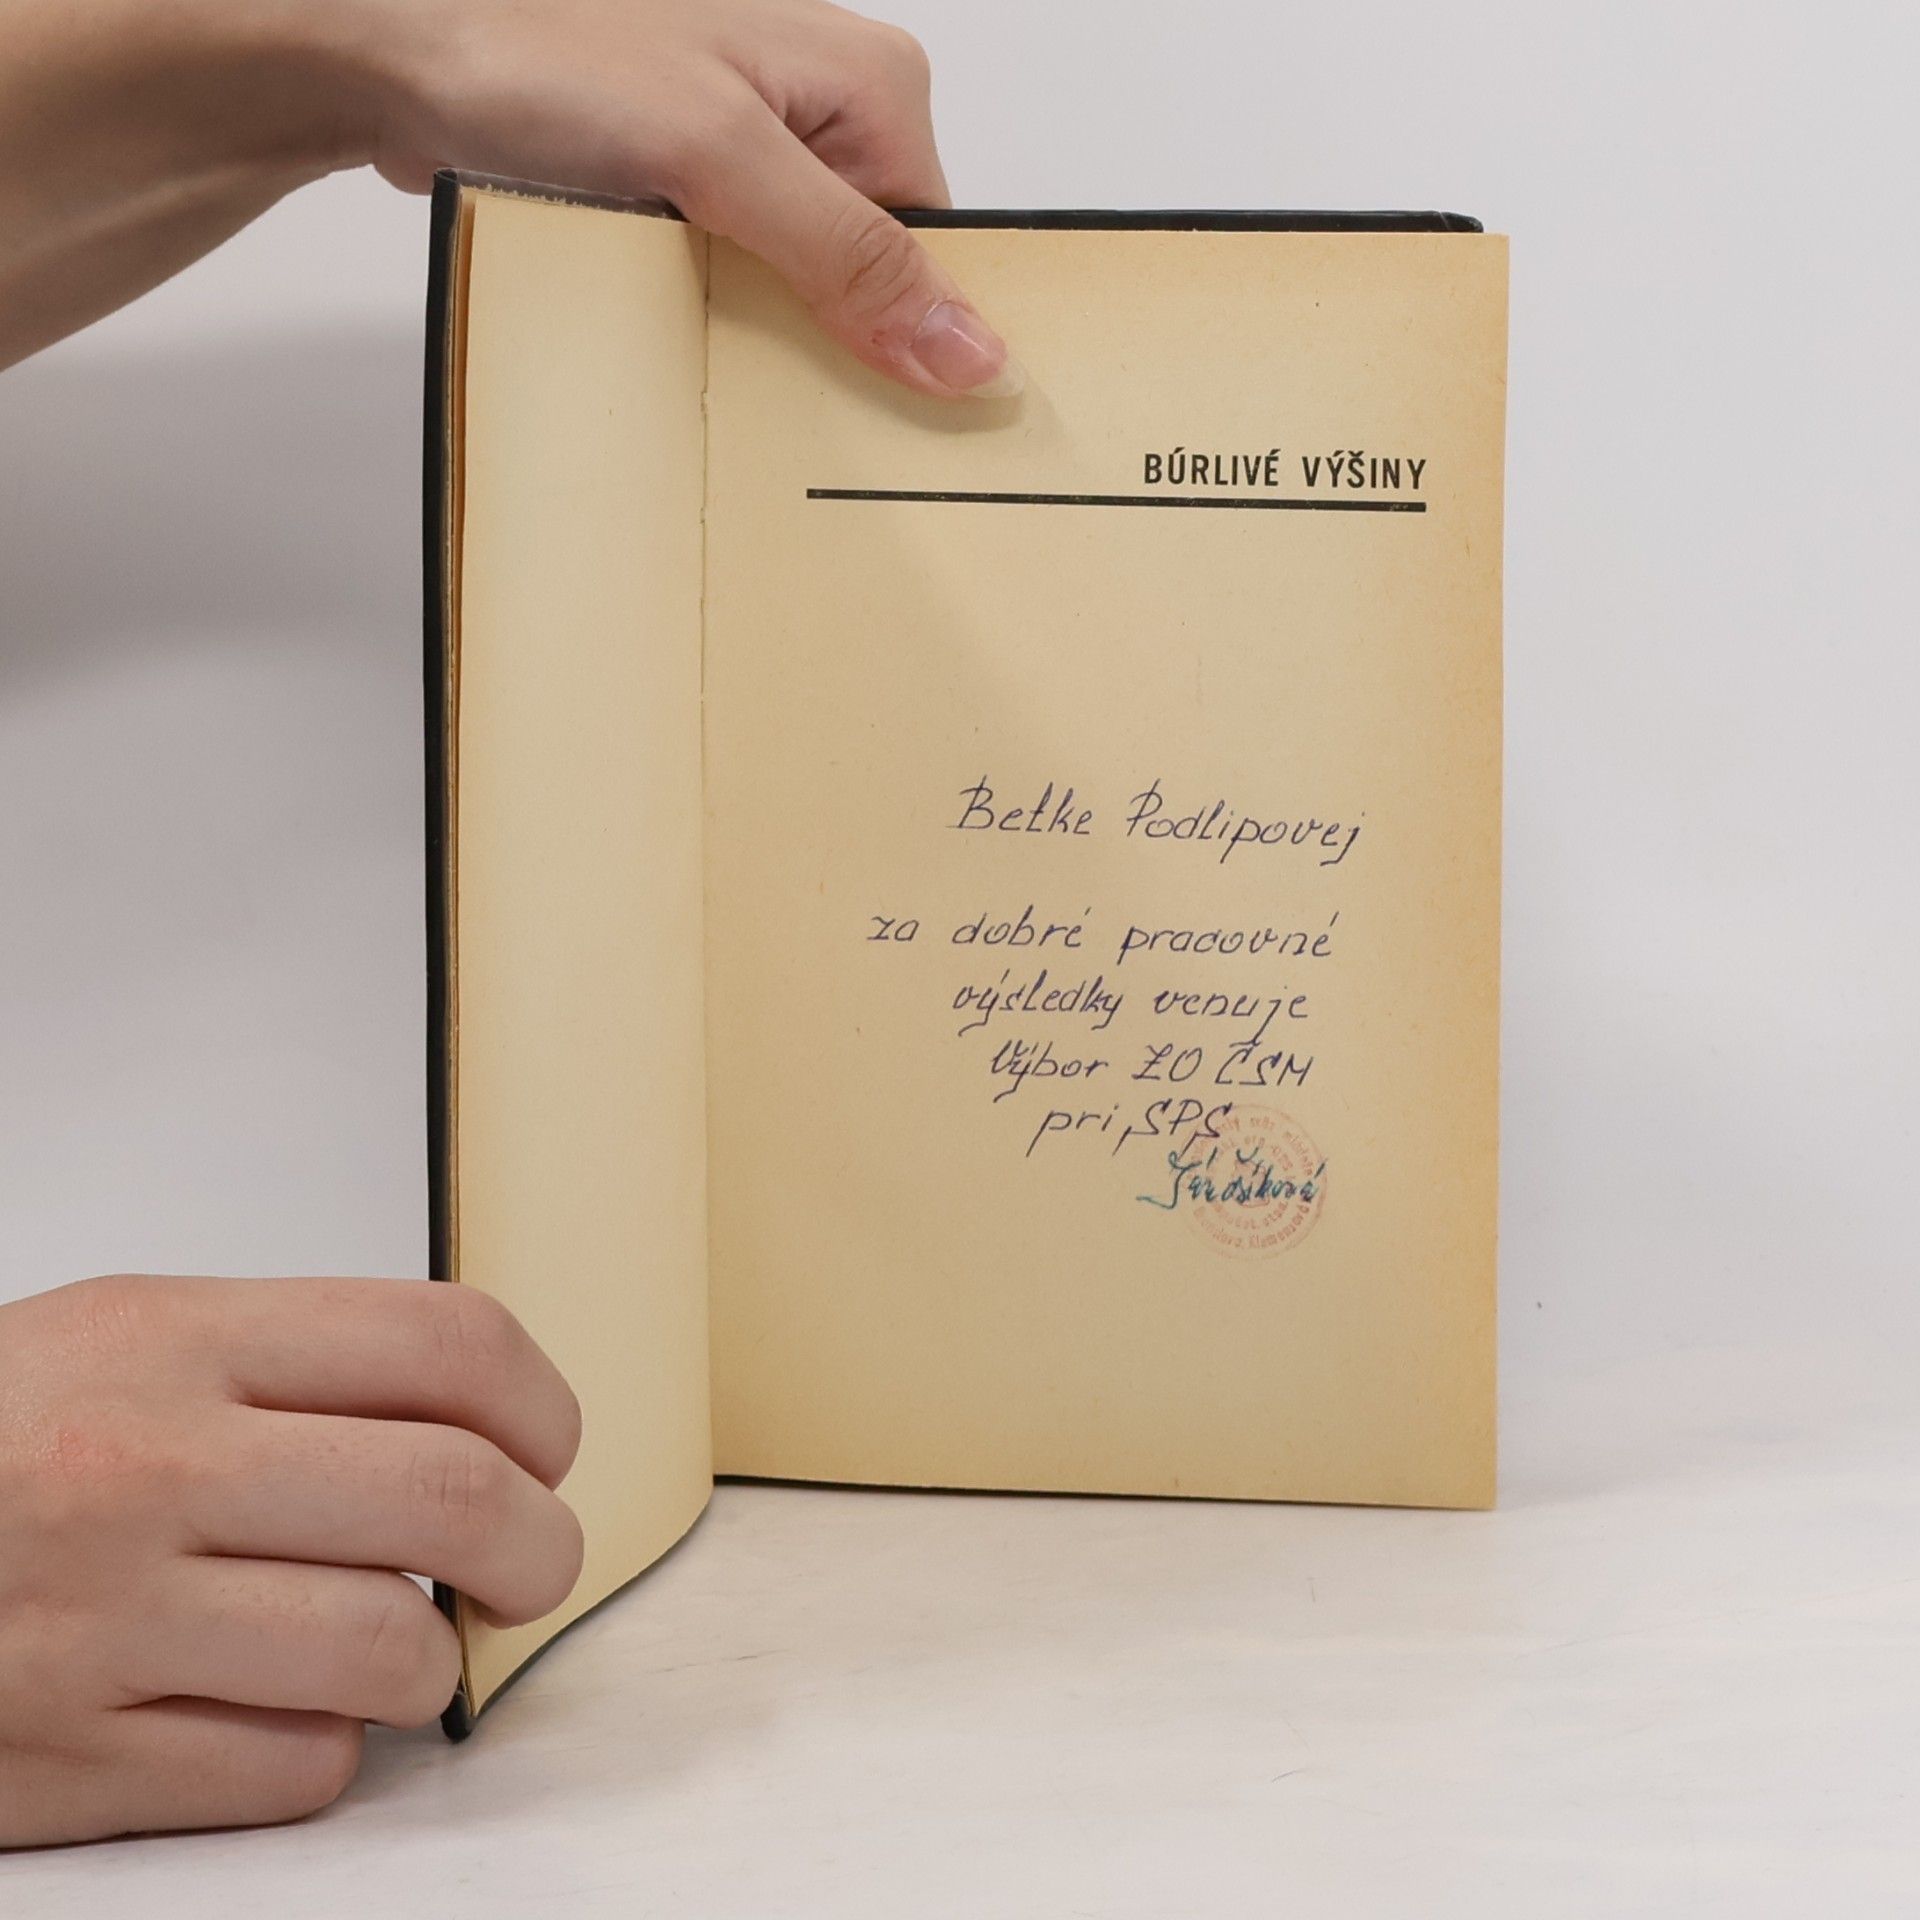 BÚRLIVÉ VÝŠINY
Betke Podlipovej
za dobré pracovné
výsledky venuje
Výbor ZO ČSM
pri SPŠ